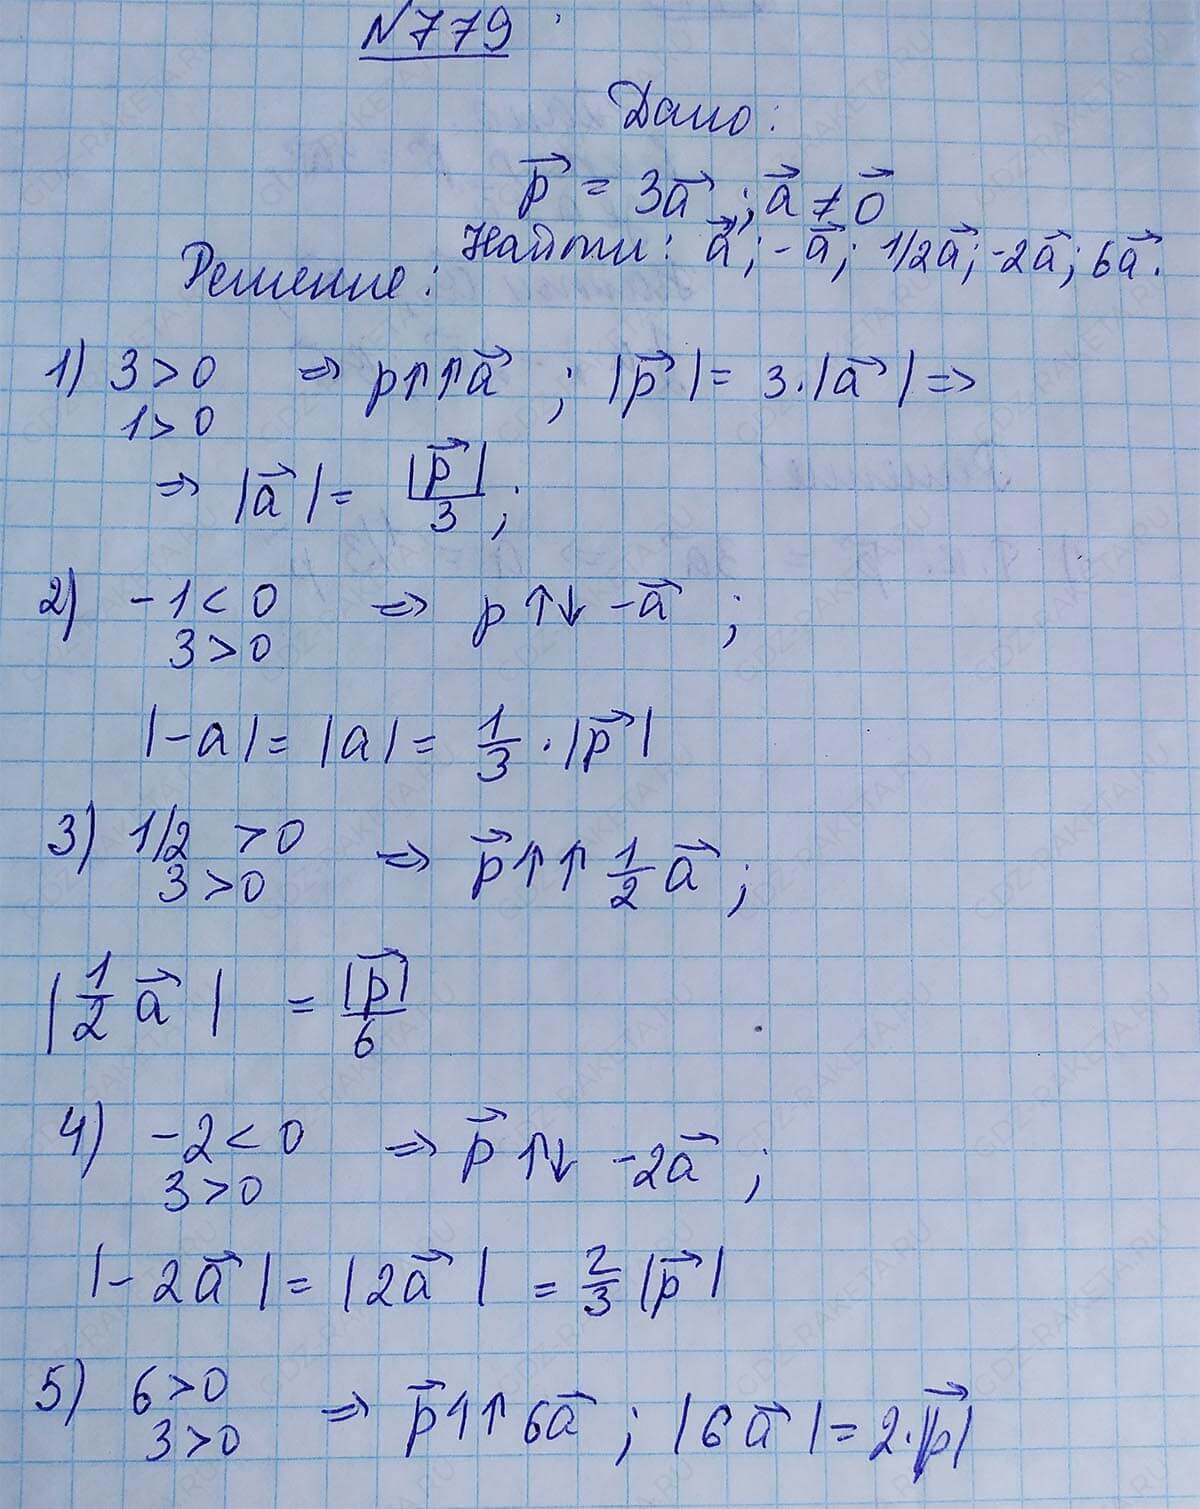 №779
Дано:
p⃗ = 3a⃗ ; a⃗ ≠ 0⃗
Найти: a⃗; -a⃗; 1/2a⃗; -2a⃗; 6a⃗.
Решение:
1) 3 > 0 ⇒ p↑↑a⃗ ; |p⃗| = 3·|a⃗| ⇒
1 > 0
⇒ |a⃗| = |p⃗|/3 ;
2) -1 < 0 ⇒ p ↑↓ -a⃗ ;
3 > 0
|-a| = |a| = 1/3 · |p⃗|
3) 1/2 > 0 ⇒ p⃗ ↑↑ 1/2 a⃗ ;
3 > 0
|1/2 a⃗| = |p⃗|/6
4) -2 < 0 ⇒ p⃗ ↑↓ -2a⃗ ;
3 > 0
|-2a⃗| = |2a⃗| = 2/3 |p⃗|
5) 6 > 0 ⇒ p⃗ ↑↑ 6a⃗ ; |6a⃗| = 2·|p⃗|
3 > 0